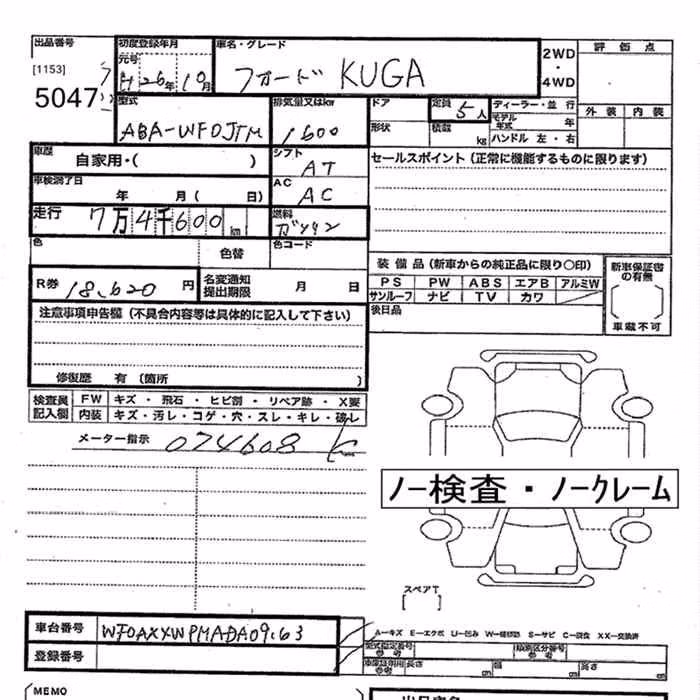 出品番号 初度登録年月 車名・グレード 2WD・4WD 評価点
[1153] 元号
5047 H26年10月 フォード KUGA
外装 内装
型式 排気量又はkw ドア 定員 5人 ディーラー・並行
ABA-WF0JTM 1600 形状 積載 kg モデル年式 年
ハンドル 左・右
車歴 自家用・( ) シフト AT セールスポイント(正常に機能するものに限ります)
車検満了日 年 月( 日) AC AC
走行 7万4千600km 燃料 ガソリン
色 色替 色コード
装備品(新車からの純正品に限り○印) 新車保証書の有無
R券 18,620円 名変通知提出期限 月 日 PS PW ABS エアB アルミW
サンルーフ ナビ TV カワ
車載不可
注意事項申告欄(不具合内容等は具体的に記入して下さい) 後日品
修復歴 有(箇所 )
検査員記入欄 FW キズ・飛石・ヒビ割・リペア跡・X要
内装 キズ・汚レ・コゲ・穴・スレ・キレ・破レ
メーター指示 074608 K
ノー検査・ノークレーム
スペアT
[ ]
車台番号 WF0AXXWPMADA09163
A-キズ E-エクボ U-凹み W-補修跡 S-サビ C-腐食 XX-交換済
登録番号 型式指定番号 参考 類別区分番号 参考
車庫証明用参考 長さ cm 幅 cm 高さ cm
(MEMO